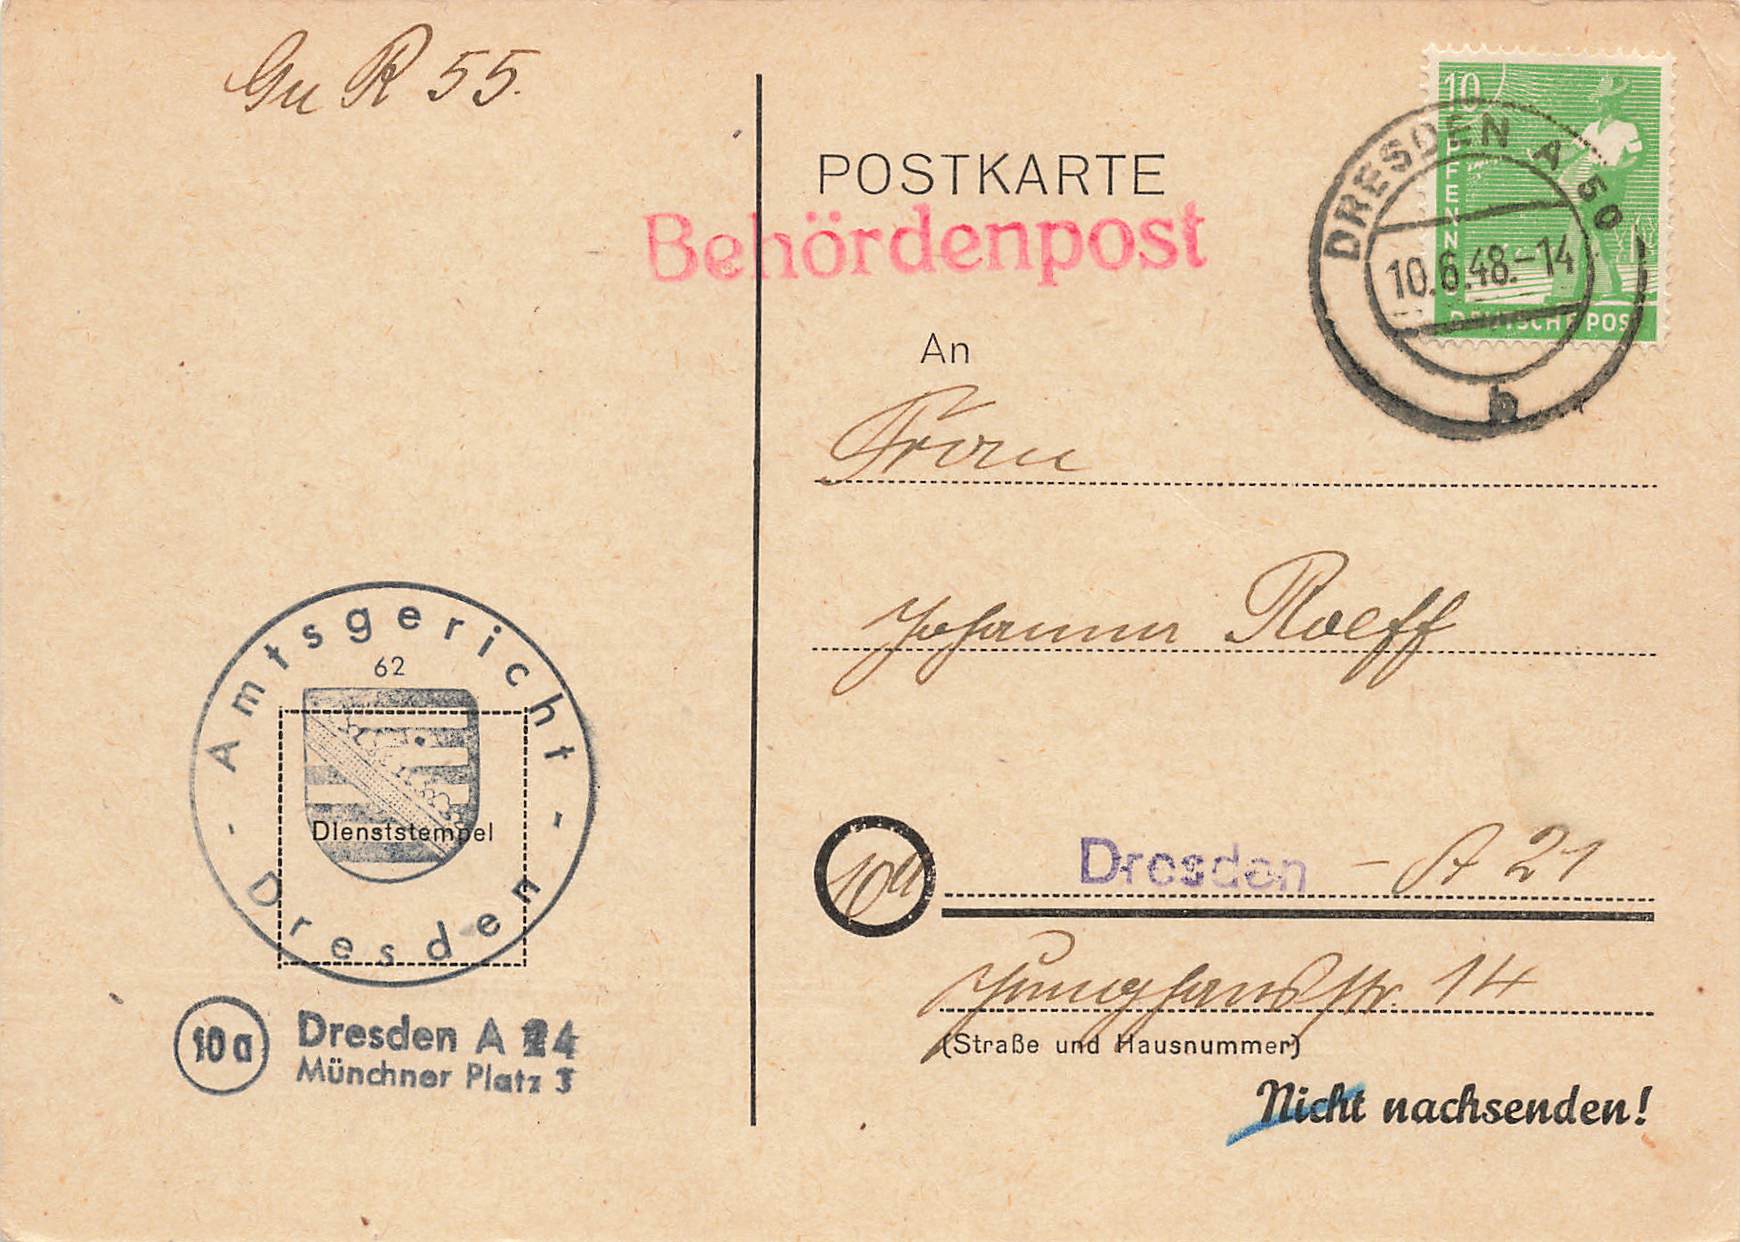 Gu R 55.
POSTKARTE
Behördenpost
10
PFENNIG
DEUTSCHE POST
DRESDEN A 50
10.6.48.-14
b
An
Frau
Johanna Roeff
10a
Dresden - A 21
Junghansstr. 14
(Straße und Hausnummer)
Nicht nachsenden!
Amtsgericht
62
Dienststempel
- Dresden -
10a
Dresden A 24
Münchner Platz 3